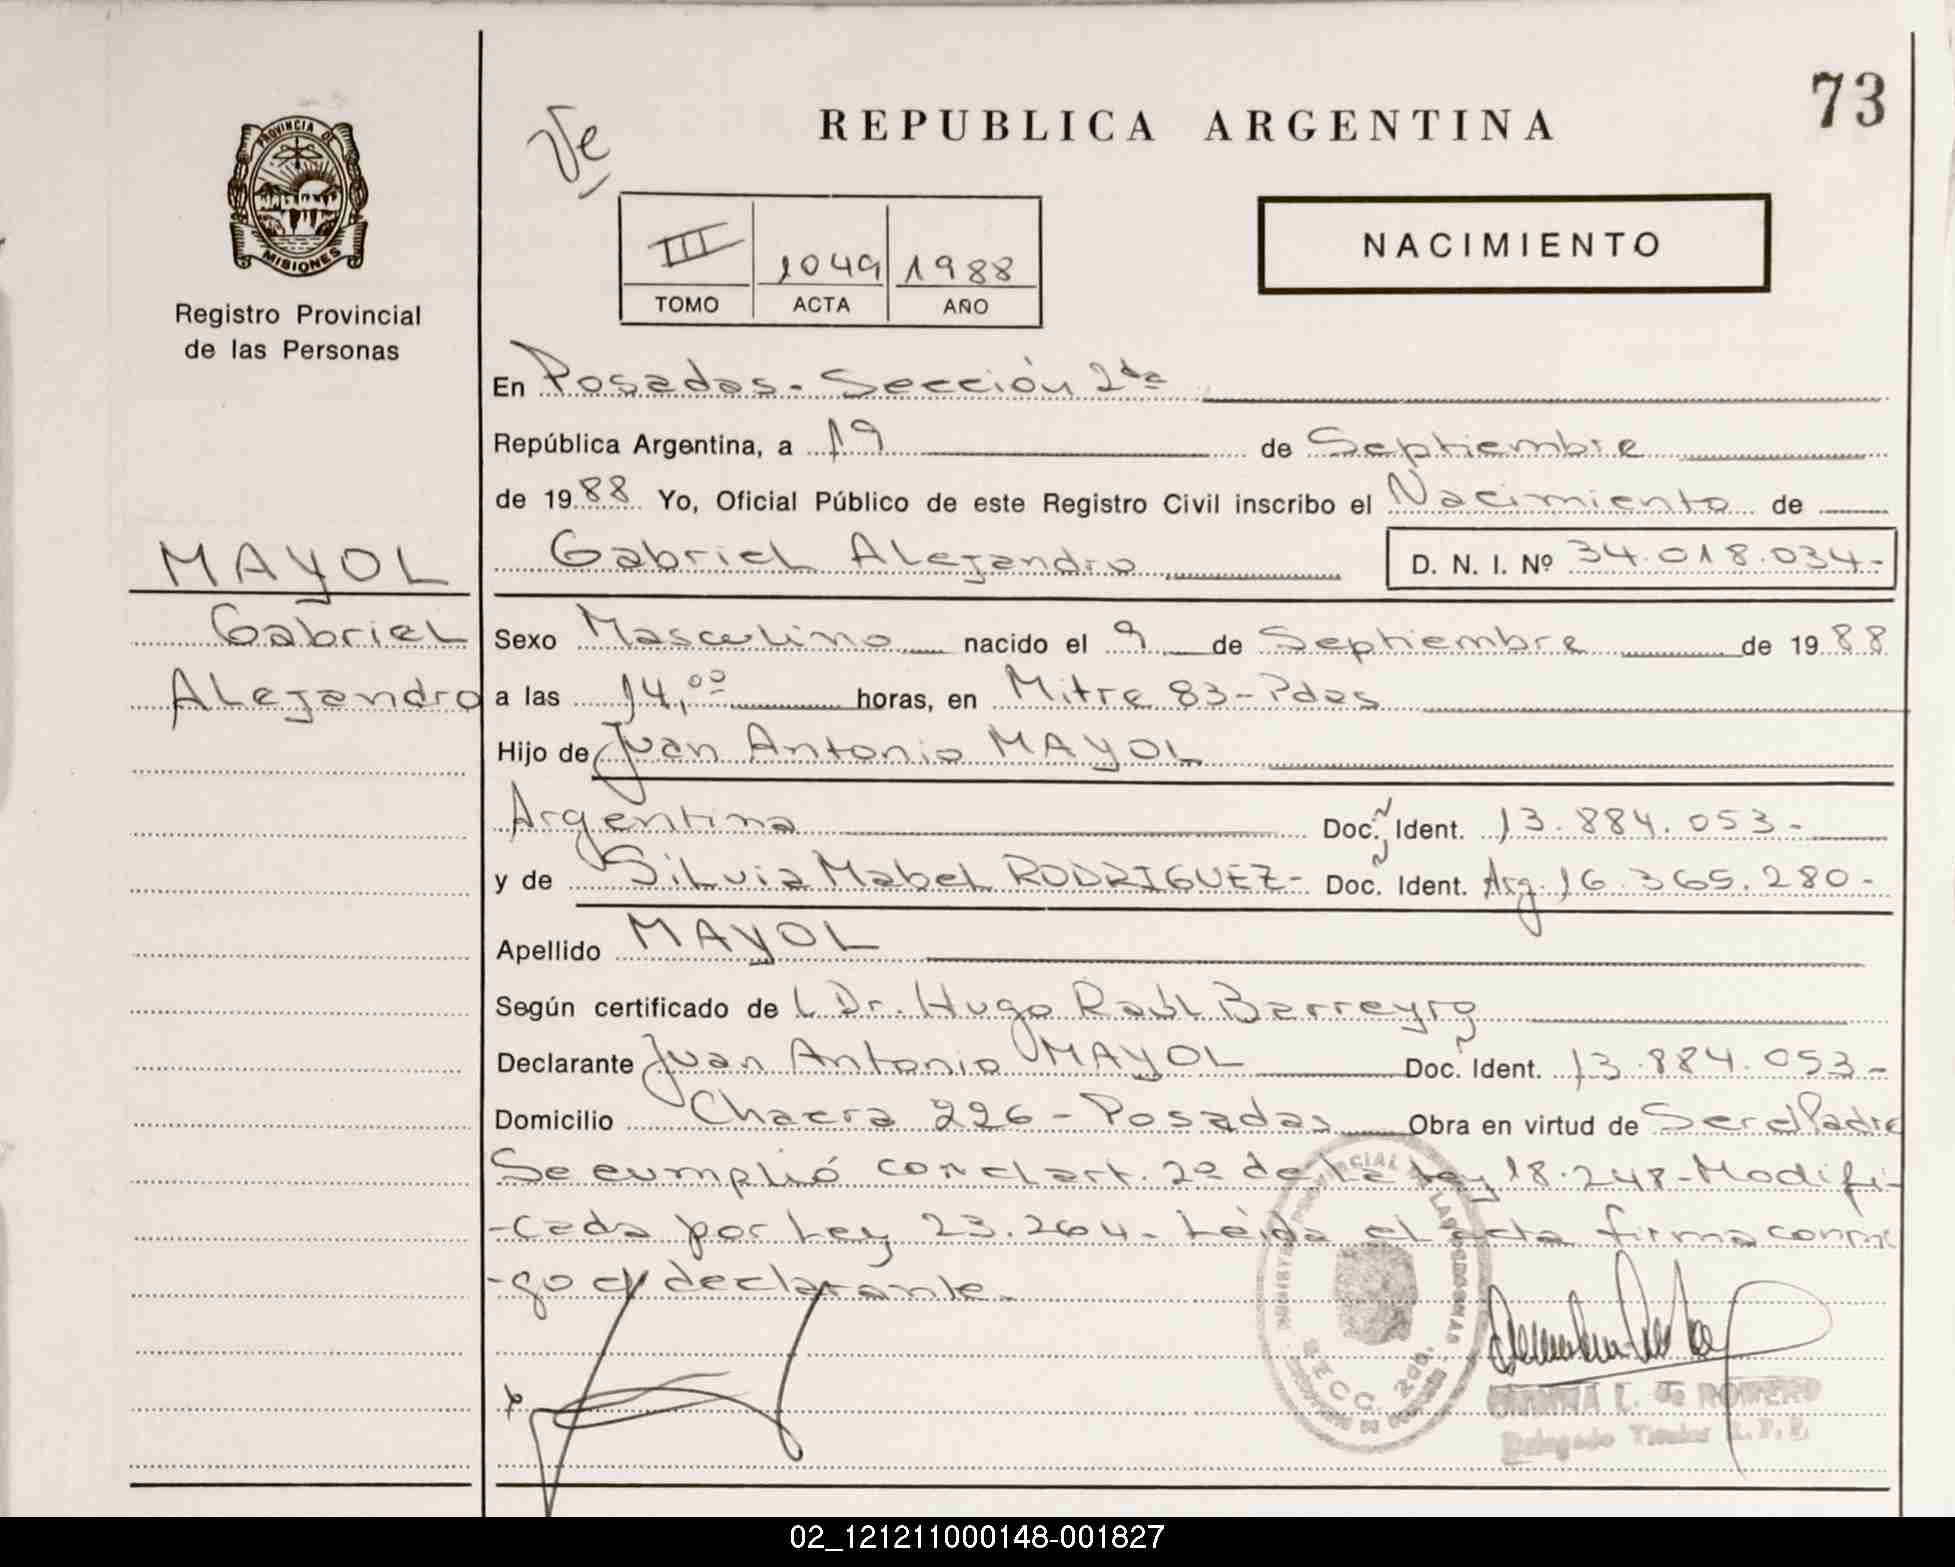 73
REPUBLICA ARGENTINA
Ve
NACIMIENTO
III 1049 1988
TOMO ACTA AÑO
PROVINCIA DE
MISIONES
Registro Provincial
de las Personas
MAYOL
Gabriel
Alejandro
En Posadas - Sección 2da
República Argentina, a 19 de Septiembre
de 1988 Yo, Oficial Público de este Registro Civil inscribo el Nacimiento de
Gabriel Alejandro D. N. I. Nº 34.018.034-
Sexo Masculino nacido el 9 de Septiembre de 1988
a las 14,00 horas, en Mitre 83 - Pdas
Hijo de Juan Antonio MAYOL
Argentina Doc. Ident. 13.884.053-
y de Silvia Mabel RODRIGUEZ- Doc. Ident. Arg. 16.365.280-
Apellido MAYOL
Según certificado de L Dr. Hugo Raúl Barreyro
Declarante Juan Antonio MAYOL Doc. Ident. 13.884.053-
Domicilio Chacra 226 - Posadas Obra en virtud de Ser el Padre
Se cumplió con el art. 2º de la Ley 18.248 - Modifi-
-cada por Ley 23.264. Leída el acta firma conmi
-go el declarante.
SECC. 2da.
L. de ROMERO
Delegado Titular R.P.P.
02_121211000148-001827